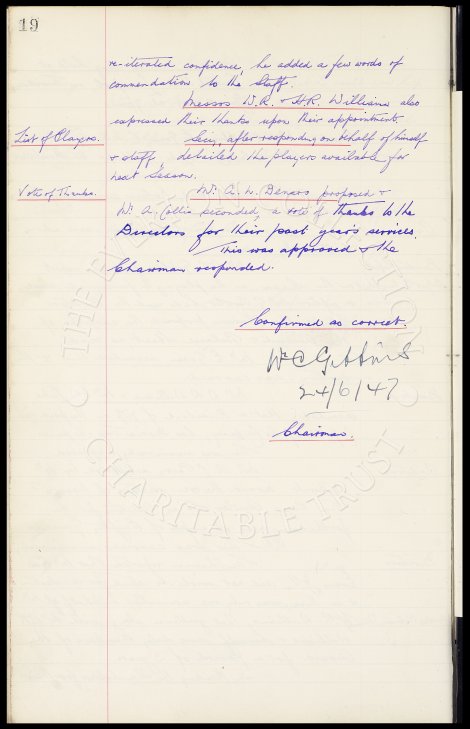 19
re-iterated confidence, he added a few words of
commendation to the Staff.
Messrs W.R. & H.R. Williams also
expressed their thanks upon their appointments.
List of Players.
Secy, after responding on behalf of himself
& staff, detailed the players available for
next Season.
Vote of Thanks.
Mr. A. L. proposed &
Mr. A. Collis seconded, a vote of thanks to the
Directors for their past year's services.
This was approved & the
Chairman responded.
Confirmed as correct.
Wm C Gibbins
24/6/47
Chairman.
THE COLLECTION
CHARITABLE TRUST